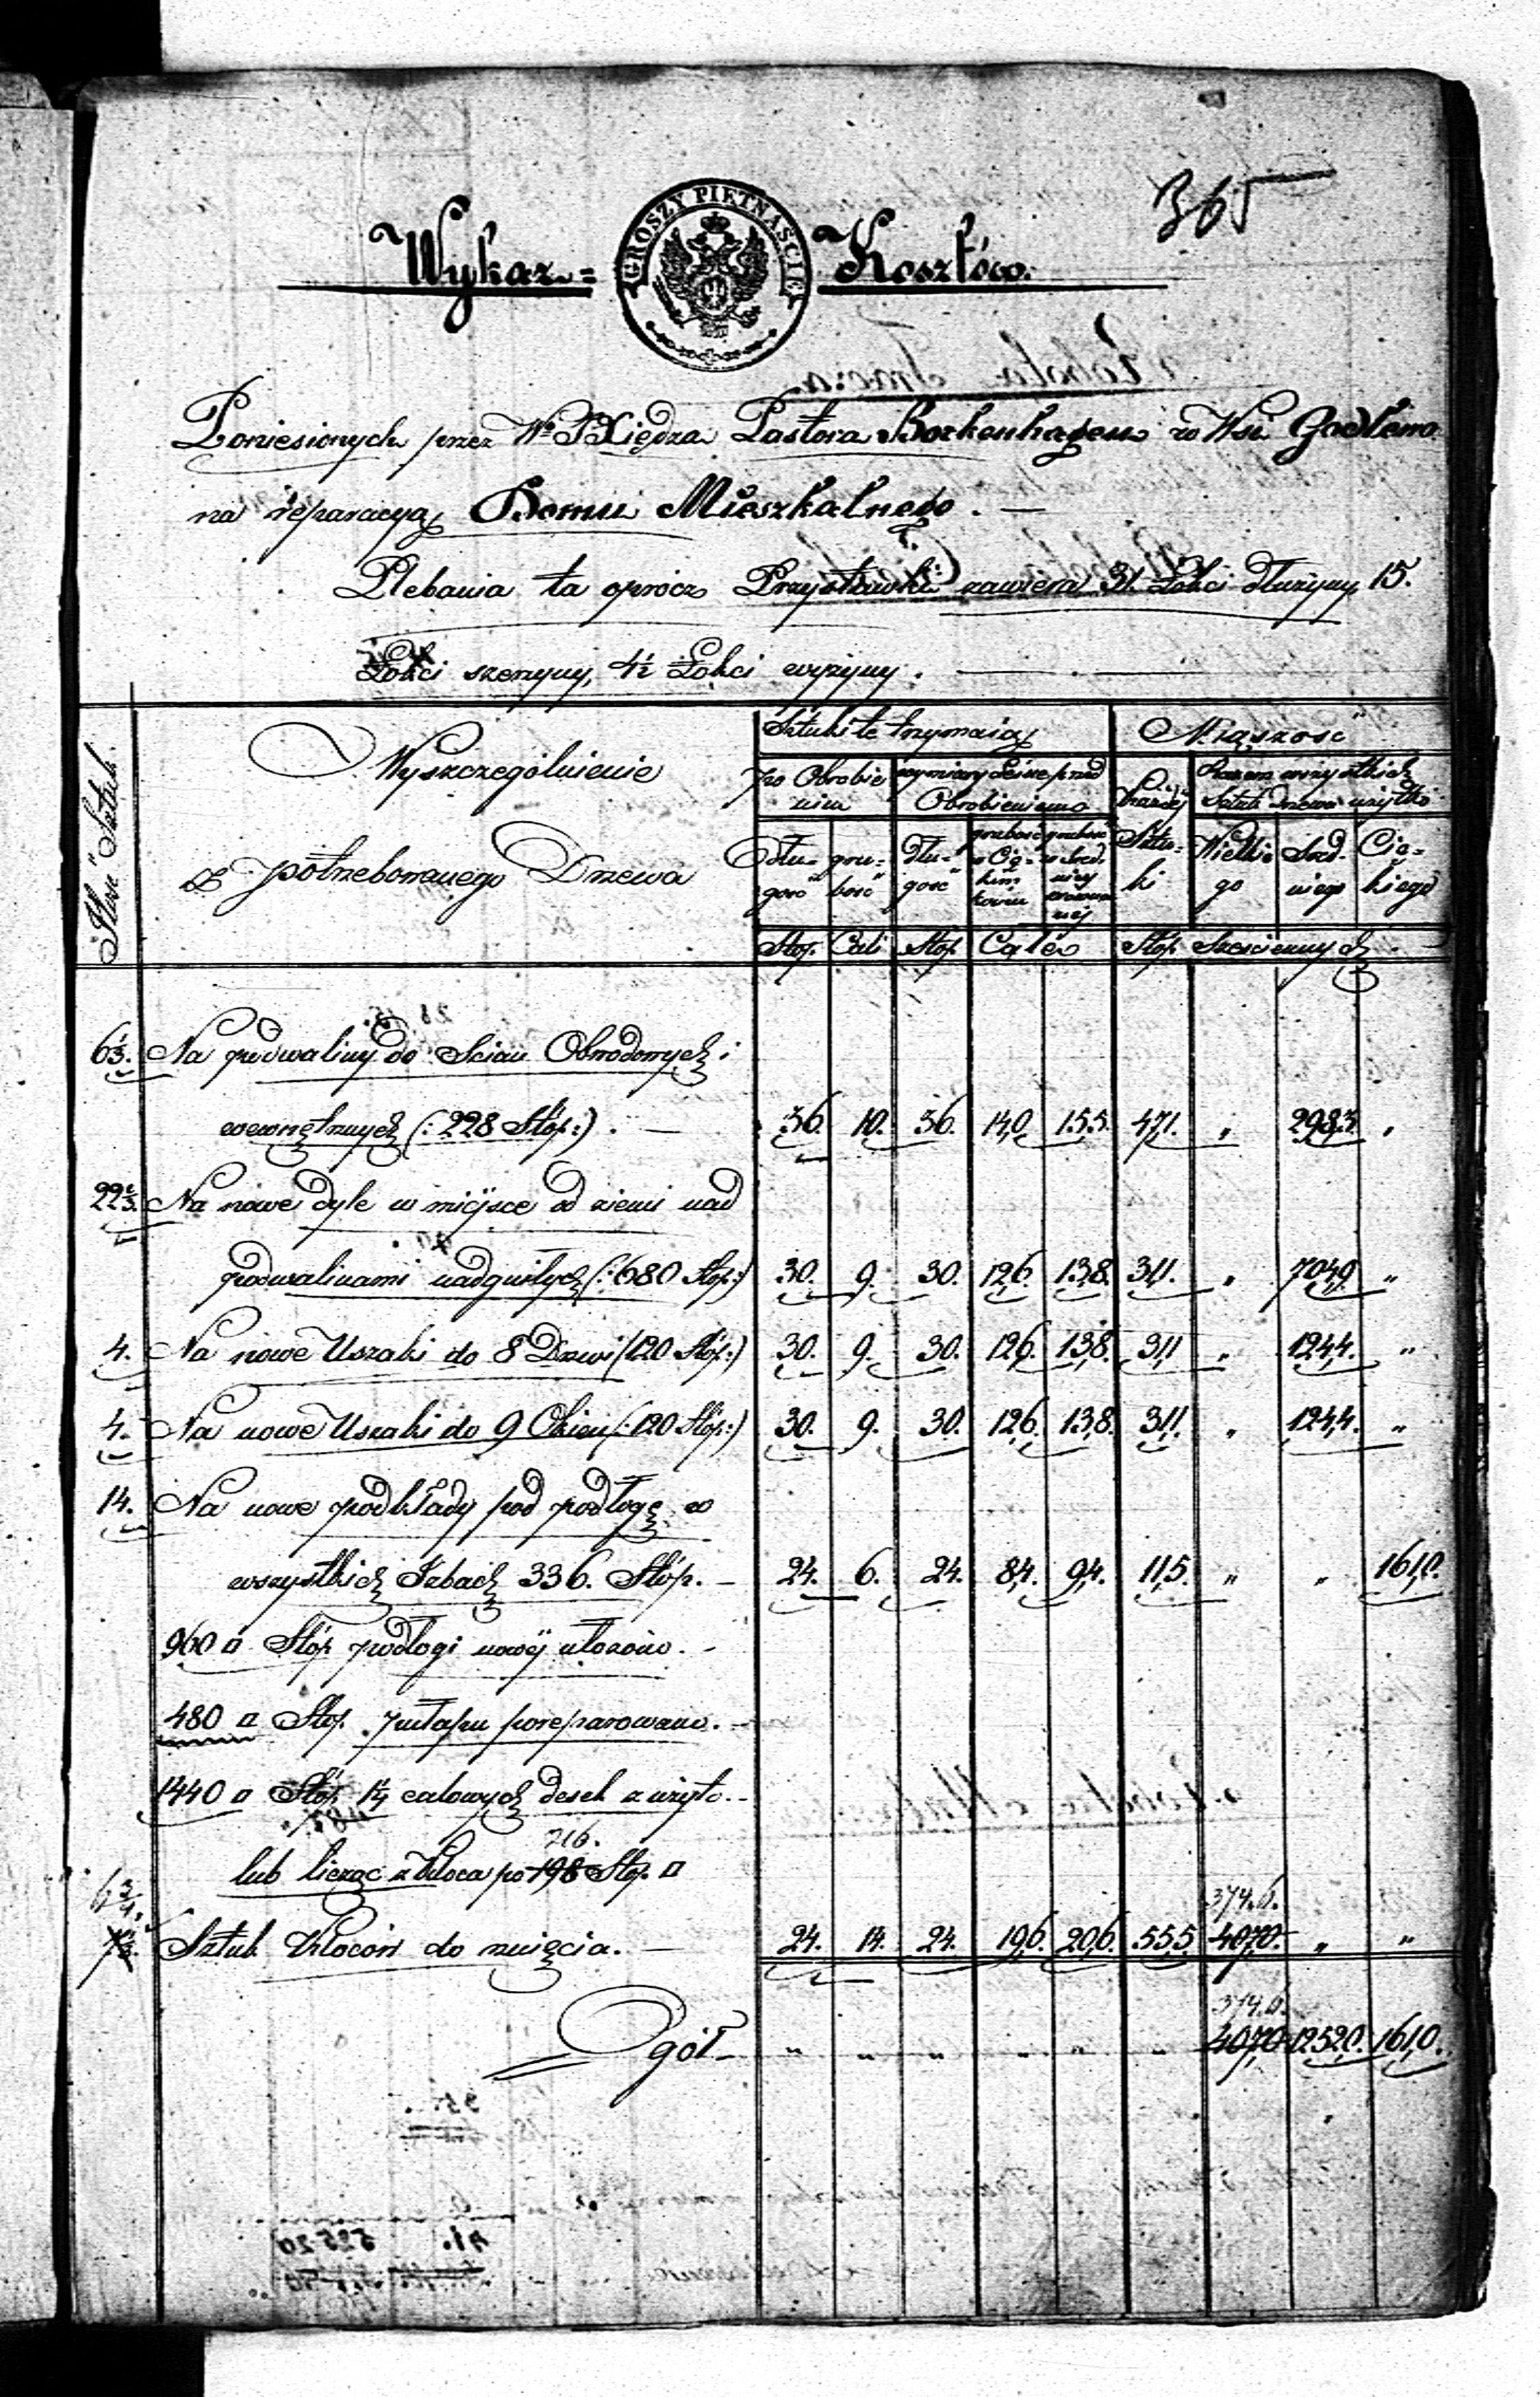 365
Wykaz = Kosztów.
GROSZY PIĘTNAŚCIE
Poniesionych przez Wo JXiędza Pastora Borkenhagen w Wsi Godlewo
na reparacyą Domu Mieszkalnego. —
Plebania ta oprócz Przystawki zawiera 31. Łokci dłużyny, 15.
Łokci szerzyny, 4½ Łokci wyżyny. —
Ilość Sztuk.
Wyszczególnienie
potrzebowanego Drzewa
Sztuki te trzymaią
Miąszość
po Obrobieniu
wymiary Leśne przed Obrobieniem
każdéj Sztuki
Razem wszystkich Sztuk drzewa użytko
Długość grubość długość grubość w Cięńkim końcu grubość w śred-
Wielkiego Średniego Cieńkiego
Stop. Cali Stop. Cale Stop. Sześciennych.
6⅓. Na podwaliny do Ścian Obwodowych i
wewnętrznych (: 228 Stóp :). — 36. 10. 36. 14,0 15,5. 47,1. „ 298,3. „
22⅔. Na nowe dyle w miéjsce od ziemi nad
podwalinami nadgniłych (: 680 Stop :) 30. 9. 30. 12,6. 13,8. 31,1. „ 704,9. „
4. Na nowe Uszaki do 8 Drzwi (120 Stóp :) 30. 9. 30. 12,6. 13,8. 31,1 „ 124,4. „
4. Na nowe Uszaki do 9 Okien (: 120 Stóp :) 30. 9. 30. 12,6. 13,8. 31,1. „ 124,4. „
14. Na nowe podkłady pod podłogę w
wszystkich Izbach 336. Stóp. — 24. 6. 24. 8,4. 9,4. 11,5. „ „ 161,0.
960 □ Stóp podłogi nowéj ułożono. -
480 □ Stop. pułapu poreparowano. -
1440 □ Stóp 1¼ calowych desek zużyto. -
216.
lub licząc z kloca po 198 Stop. □
6¾. 374.6.
7⅓. Sztuk Kloców do rznięcia. — 24. 14. 24. 19,6. 20,6. 55,5. 407,0. „ „
374.6.
Ogół - „ „ „ „ „ „ 407,0 1252,0. 161,0.